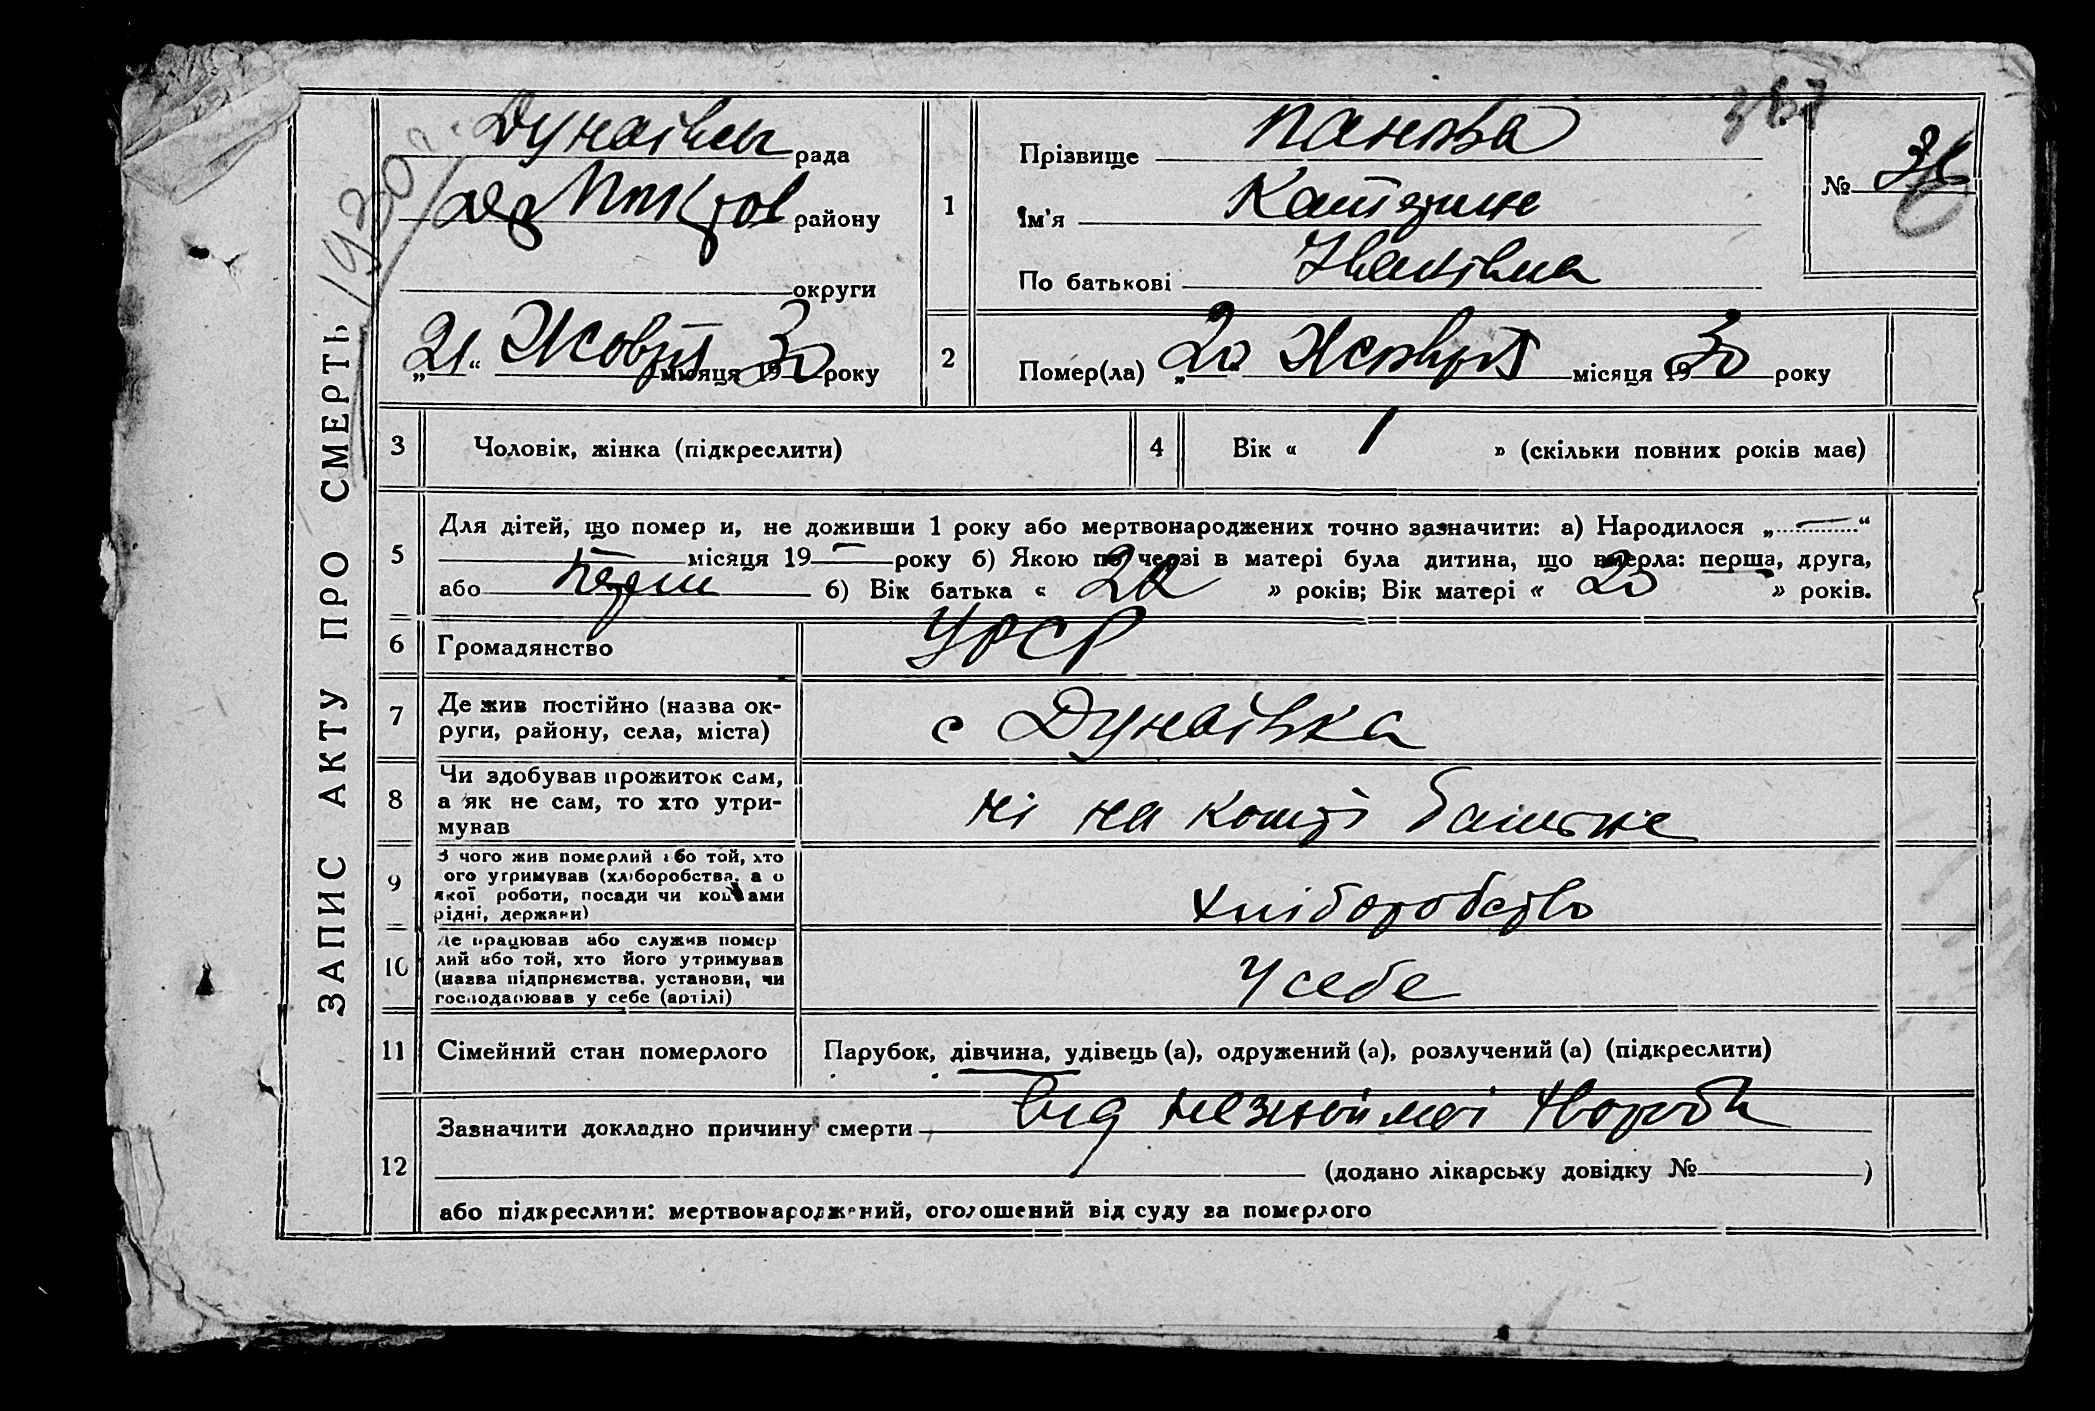 ЗАПИС АКТУ ПРО СМЕРТЬ
1930 г.
367
Дунаівська рада
району
округи
„21“ Жовтня місяця 1930 року
1
Прізвище Панова
Ім'я Катерина
По батькові Іванівна
№ 36
2
Помер(ла) „20 Жовтня місяця 1930 року
3
Чоловік, жінка (підкреслити)
4
Вік « 1 » (скільки повних років має)
5
Для дітей, що помер и, не доживши 1 року або мертвонароджених точно зазначити: а) Народилося „ — “
— місяця 19 — року б) Якою по черзі в матері була дитина, що вмерла: перша, друга,
або перш б) Вік батька « » років; Вік матері « 20 » років.
6
Громадянство УРСР
7
Де жив постійно (назва ок-
руги, району, села, міста)
с Дунаівка
8
Чи здобував прожиток сам,
а як не сам, то хто утри-
мував
ні на кошті батька
9
З чого жив померлий або той, хто
ого утримував (хліборобства, а о
якої роботи, посади чи коштами
рідні, держави)
хліборобство
10
Де працював або служив помер
лий або той, хто його утримував
(назва підприємства, установи, чи
господарював у себе (артілі)
У себе
11
Сімейний стан померлого
Парубок, дівчина, удівець (а), одружений (а), розлучений (а) (підкреслити)
12
Зазначити докладно причину смерти від незнаймої хвороби
(додано лікарську довідку № )
або підкреслити: мертвонароджений, оголошений від суду за померлого